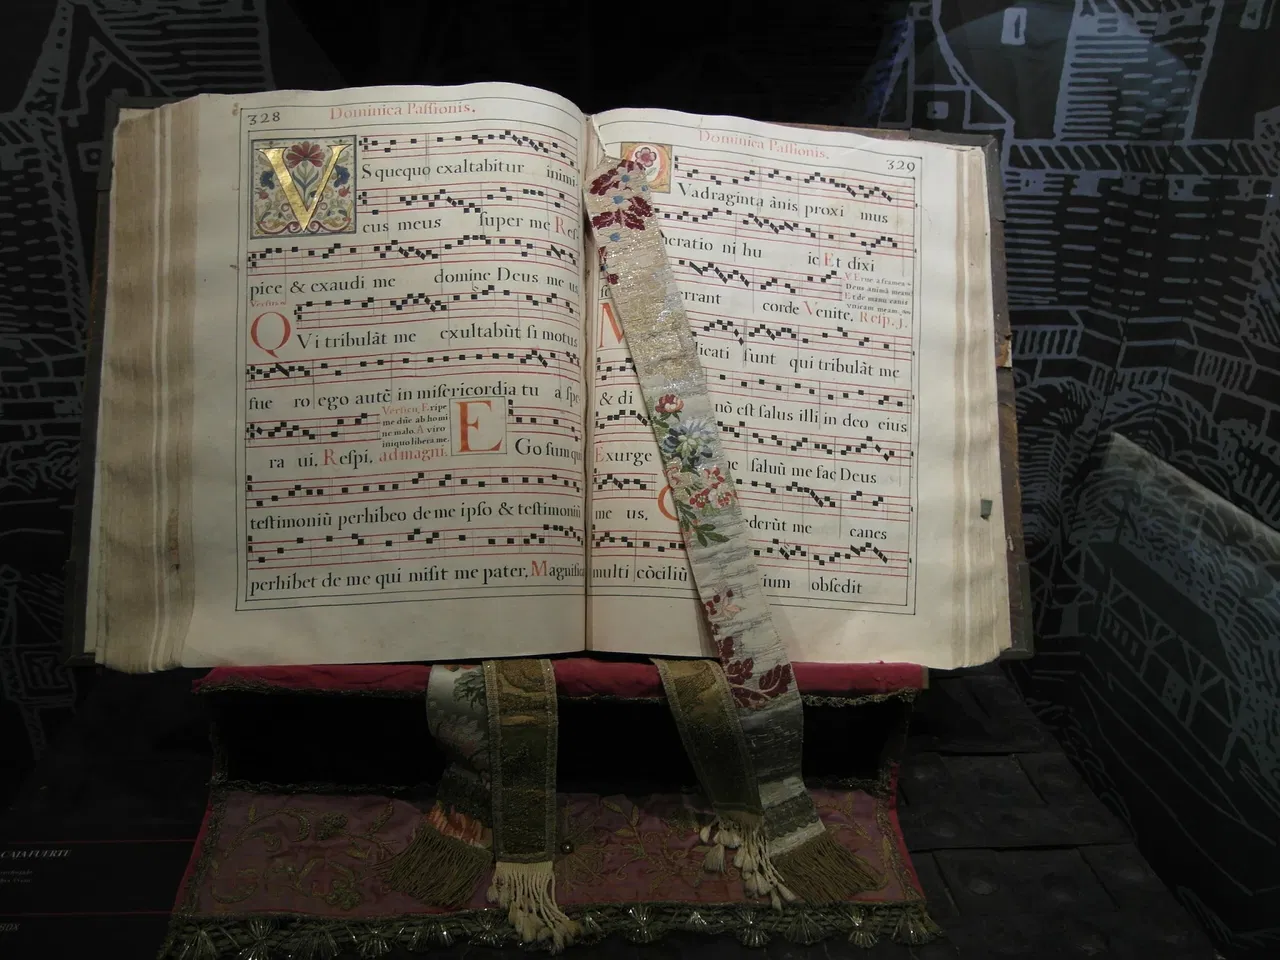 328
Dominica Paſſionis.
V
S quequo exaltabitur inimi
cus meus ſuper me Reſ
pice & exaudi me domine Deus me us
Verſus
Q Vi tribulãt me exultabũt ſi motus
fue ro ego autẽ in miſericordia tu a ſpe
Verſicu. Eripe
me dñe ab homi
ne malo. A viro
iniquo libera me.
ra ui. Reſpi. ad magni.
E Go ſum qui
teſtimoniũ perhibeo de me ipſo & teſtimoniũ
perhibet de me qui miſit me pater. Magnifica
Dominica Paſſionis.
329
Q
Vadraginta ãnis proxi mus
neratio ni hu ic Et dixi
errant corde Venite. Reſp. j.
V. Erue a framea
Deus animã meam
Et de manu canis
vnicam meam.
M
licati ſunt qui tribulãt me
& di nõ eſt ſalus illi in deo eius
Exurge ſaluũ me fac Deus
me us. C ederũt me canes
multi cõciliũ ium obſedit
CAJA FUERTE